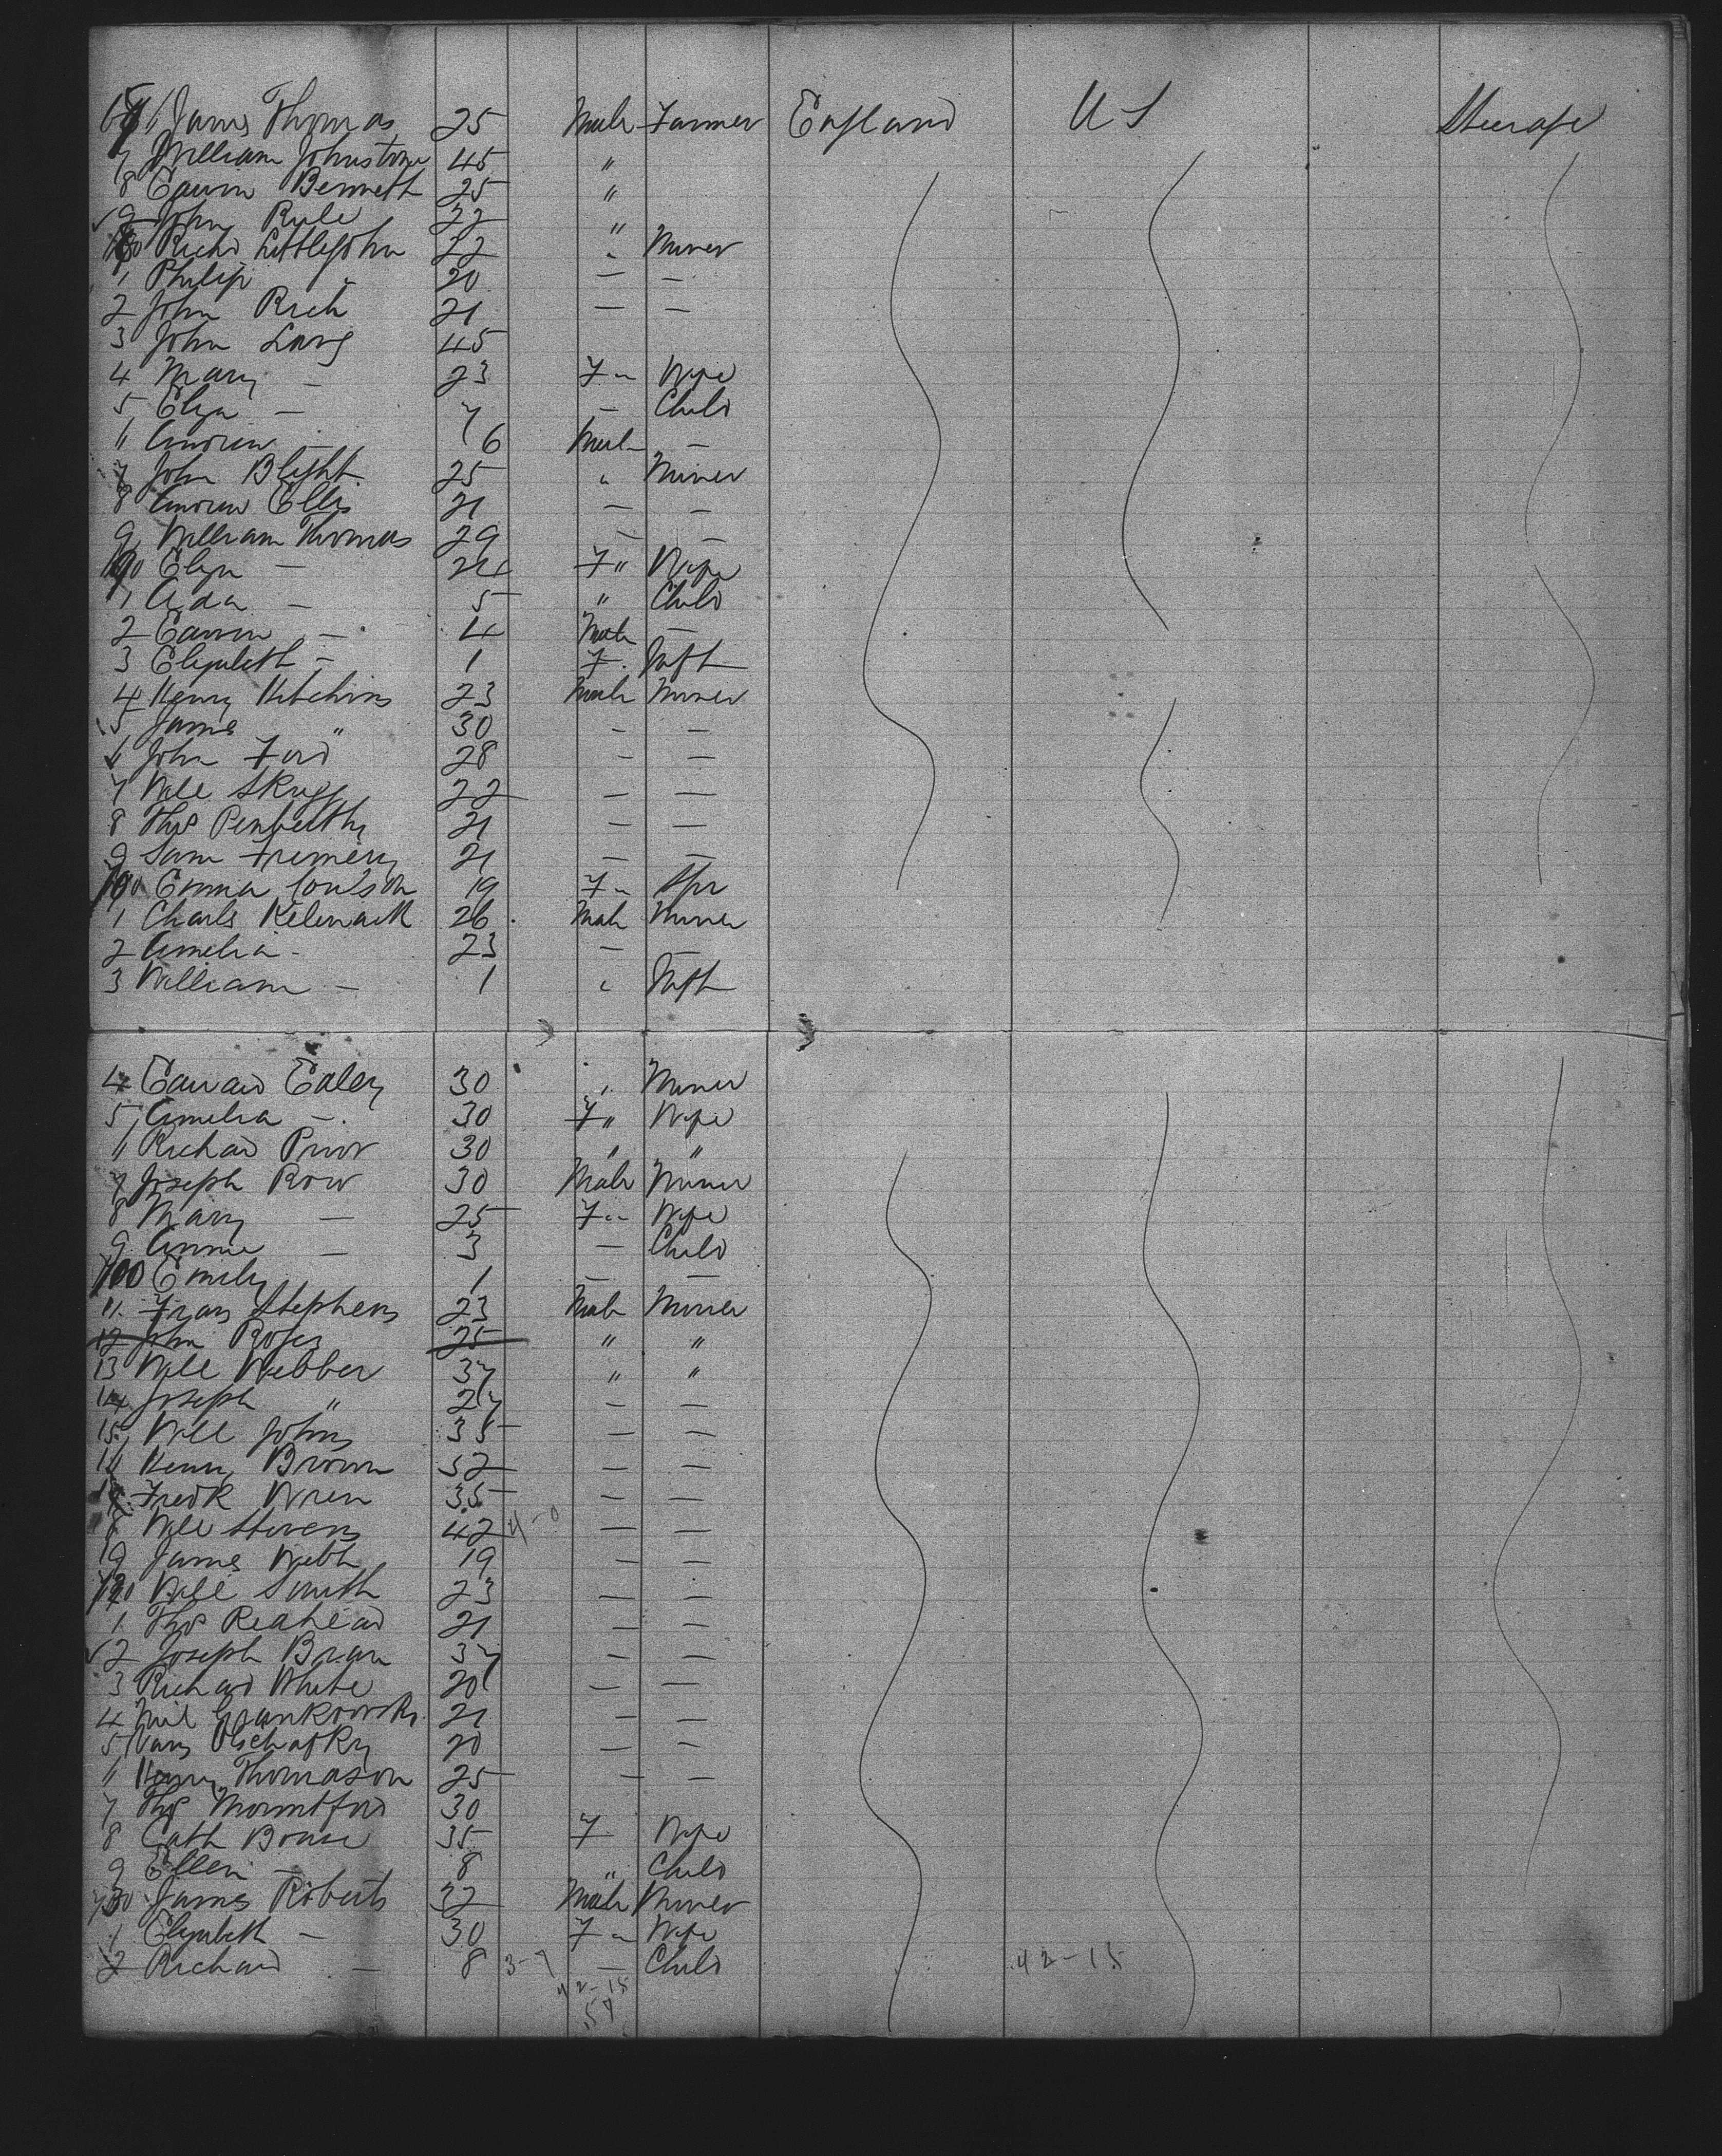 James Thomas 25 Male Farmer England U S Steerage
7 William Johnstone 45 "
8 Edwin Bennett 25 "
9 John Rule 22 "
Richd Littlejohn 22 " Miner
1 Philip " 20 — —
2 John Rich 21 — —
3 John Lang 45
4 Mary — 23 F " Wife
5 Eliza — 7 — Child
6 Andrew — 6 Male —
7 John Blight 25 " Miner
8 Andrew Ellis 21 — —
9 William Thomas 29 — —
Eliza — 24 F " Wife
1 Ada — 5 " Child
2 Edwin — 4 Male —
3 Elizabeth — 1 F. Inft
4 Henry Hitchins 23 Male Miner
5 James " 30 — —
6 John Ford 28 — —
7 Will 22 — —
8 Thos Penberthy 21 — —
9 Sam 21 — —
Emma 19 F " Spr
1 Charles 26 Male Miner
2 Amelia — 23 — —
3 William — 1 " Inft
4 Edward Ealey 30 " Miner
5 Amelia — 30 F " Wife
6 Richard 30 " "
7 Joseph Row 30 Male Miner
8 Mary — 25 F " Wife
9 Annie — 3 — Child
Emily 1 — —
11 Frans Stephens 23 Male Miner
12 John 25 " "
13 Will Webber 37 " "
14 Joseph " 27 — —
15 Will Johns 35 — —
16 Henry Brown 32 — —
Fredk Wren 35 — —
8 Will Stevens 42 4-0 — —
19 James Webb 19 — —
Will Smith 23 — —
1 Thos Redhead 21 — —
2 Joseph 37 — —
3 Richard White 20 — —
4 21 — —
5 20 — —
6 Henry Thomason 25 — —
7 Thos Mountford 30
8 Cath 35 F Wife
9 Ellen — 8 " Child
James Roberts 32 Male Miner
1 Elizabeth — 30 F " Wife
2 Richard — 8 3-7 — Child 42-15
42-15
57